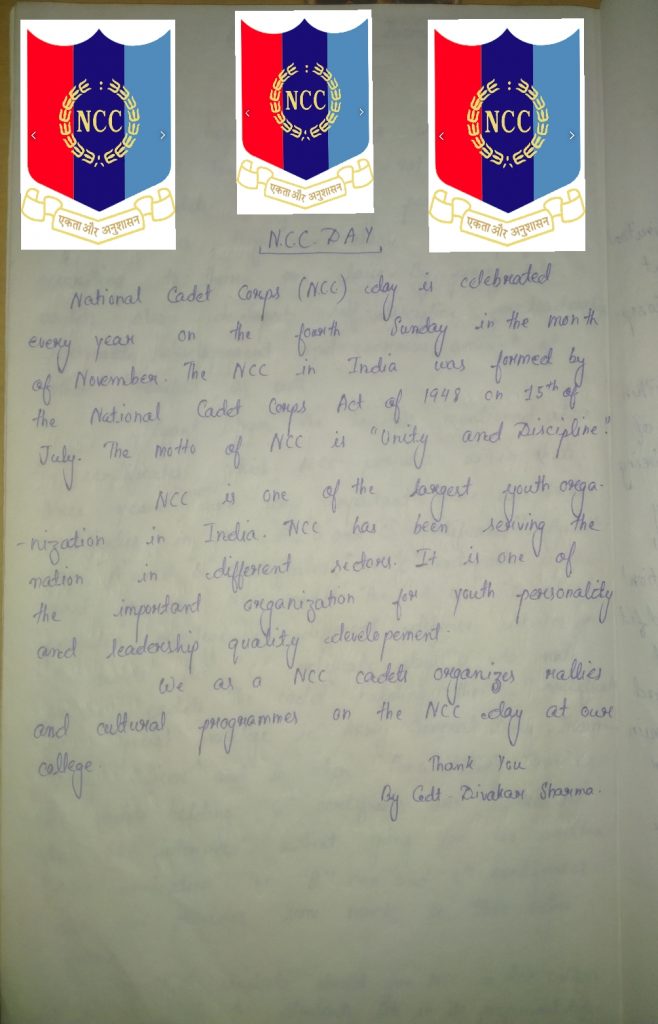 NCC
एकता और अनुशासन
NCC
एकता और अनुशासन
NCC
एकता और अनुशासन
N.C.C. DAY
National Cadet Corps (NCC) day is celebrated
every year on the fourth Sunday in the month
of November. The NCC in India was formed by
the National Cadet Corps Act of 1948 on 15th of
July. The motto of NCC is "Unity and Discipline."
NCC is one of the largest youth orga-
-nization in India. NCC has been seriving the
nation in different sectors. It is one of
the important organization for youth personality
and leadership quality developement.
We as a NCC cadets organizes rallies
and cultural programmes on the NCC day at our
college.
Thank You
By Cadt. Divakar Sharma.